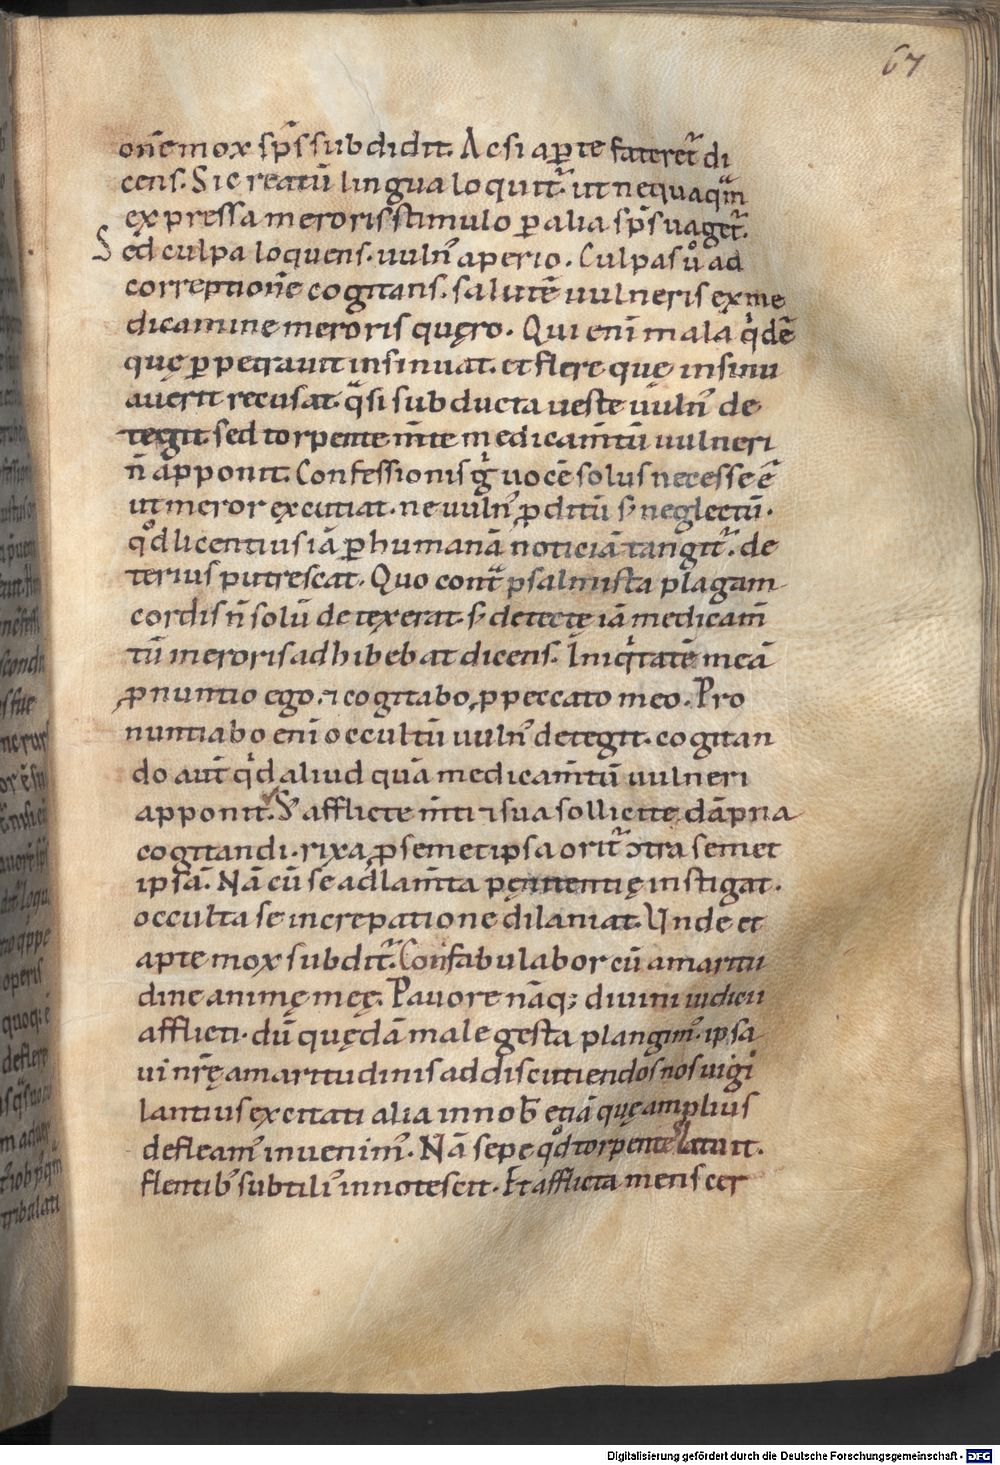 67
onẽ mox sp̃s subdidit. Ac si aꝑte fateret᷑ di
cens. Sic reatũ lingua loquit᷑. ut nequaqᷓm
expressa meroris stimulo ꝑ alia sp̃s uaget᷑.
Sed culpã loquens. uuln᷑ aperio. Culpã ů ad
correptionẽ cogitans. salutẽ uulneris ex me
dicamine meroris quęro. Qui eni̅ mala qͥdẽ
quę ꝑpetrauit insinuat. et flere quę insinu
auerit recusat. qᷓsi subducta ueste uuln᷑ de
tegit. sed torpente m̅te medicam̅tũ uulneri
n̅ apponit. Confessionis gͥ uocẽ solus necesse ẽ
ut meror excutiat. ne uuln᷑ ꝓditũ sꝫ neglectũ.
qͦd licentius iã ꝑ humanã noticiã tangit᷑. de
terius putrescat. Quo contᷓ psalmista plagam
cordis n̅ solũ detexerat. sꝫ detectę iã medicam̅
tũ meroris adhibebat dicens. Iniqͥtatẽ meã
ꝓnuntio ego. ⁊ cogitabo ꝓ peccato meo. Pro
nuntiabo eni̅ occultũ uuln᷑ detegit. cogitan
do aut̅ qͥd aliud quã medicam̅tũ uulneri
apponit. Sꝫ afflicte m̅ti ⁊ sua sollicite dãpna
cogitandi. rixa ꝓ semetipsa orit᷑ ɔtra semet
ipsã. Nã cũ se ad lam̅ta pęnitentię instigat.
occulta se increpatione dilaniat. Unde et
apte mox subdit᷑. Confabulabor cũ amaritu
dine animę meę. Pauore nãqꝫ diuini iudicii
afflicti. dũ quędã male gesta plangim᷒. ipsa
ui nr̅ę amaritudinis ad discutiendos nos uigi
lantius excitati alia in nob̅ etiã quę amplius
defleam᷒ inuenim᷒. Nã sepe qͦd torpente latuit.
flentib᷒ subtili᷒ innotescit. Et afflicta mens cer